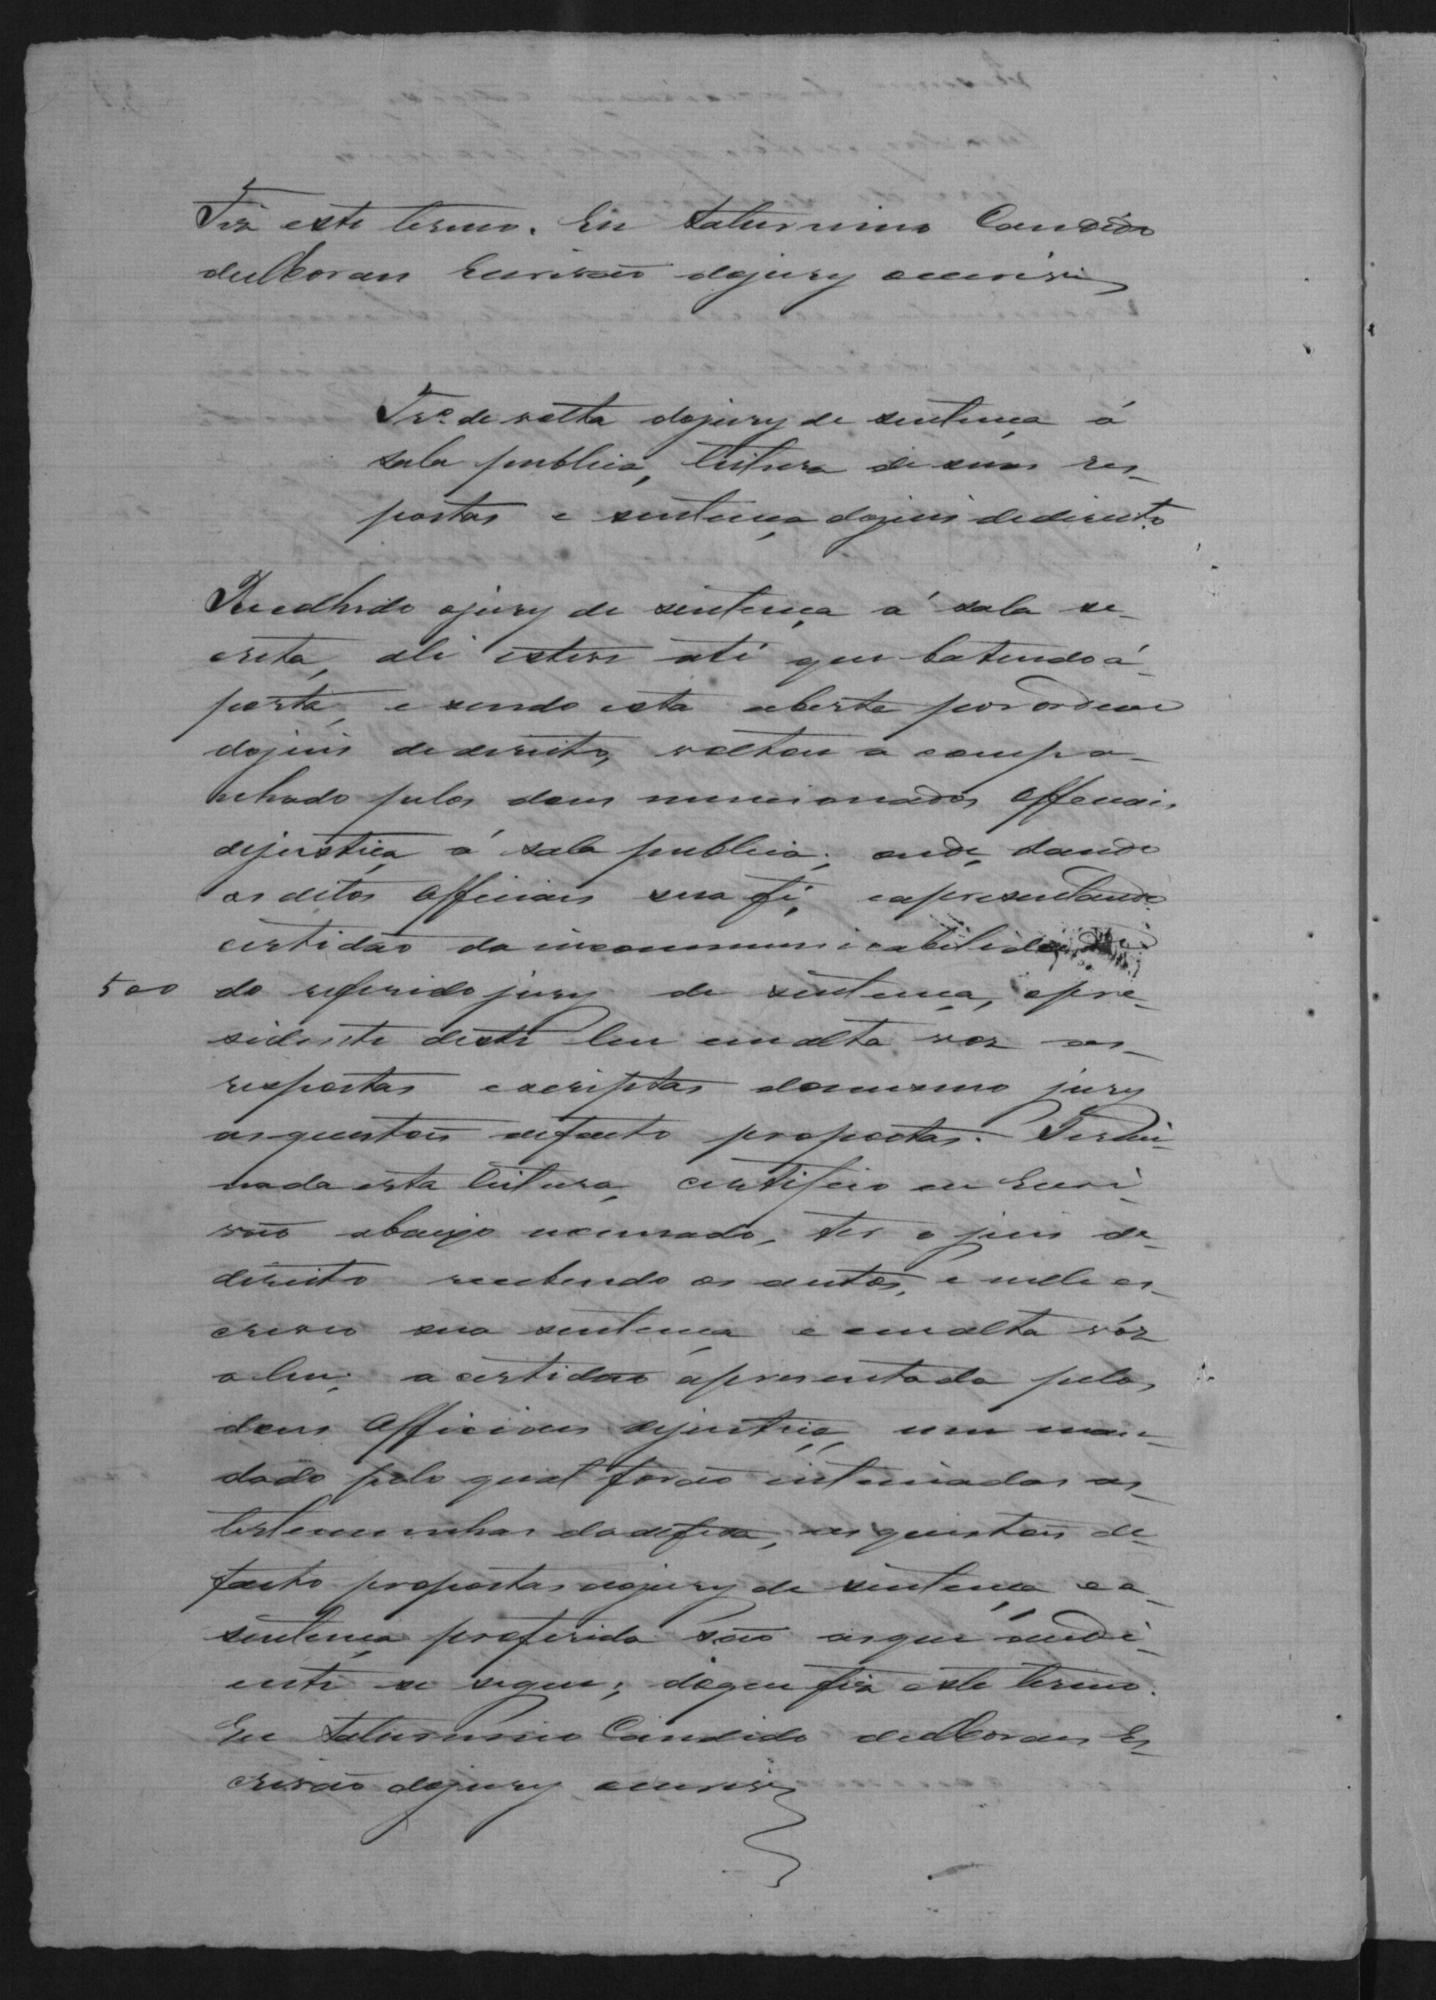 Fiz este termo. Eu Saturnino Candido
de Moraes Escrivão do jury o escrivi
Tr.º de volta do jury de sentença á
sala publica, leitura de suas res-
postas e sentença do juis de direito
Recolhido o jury de sentença á sala se-
creta, ali esteve até que batendo á
porta, e sendo esta aberta por ordem
do juis de direito, voltou acompa-
nhado pelos dous mencionados officiais
de justiça á sala publica; onde, dando
os ditos officiais sua fé, e apresentando
certidão da incommunicabilidade
500 do referido jury de sentença, o pre-
sidente deste leu em alta voz as
respostas escriptas do mesmo jury
as questões de facto propostas. Termi-
nada esta leitura, certifico eu Escri-
vão abaixo nomeado, ter o juis de
direito recebendo os autos, e nelle es-
creveo sua sentença e em alta vóz
a leu; a certidão apresentada pelos
dous officiais de justiça, um man-
dado pelo qual forão intimadas as
testemunhas da defesa, as questões de
facto propostas ao jury de sentença e a
sentença proferida são as que adi-
ente se segue; do que fiz este termo.
Eu Saturnino Candido de Moraes Es-
crivão do jury o escrivi